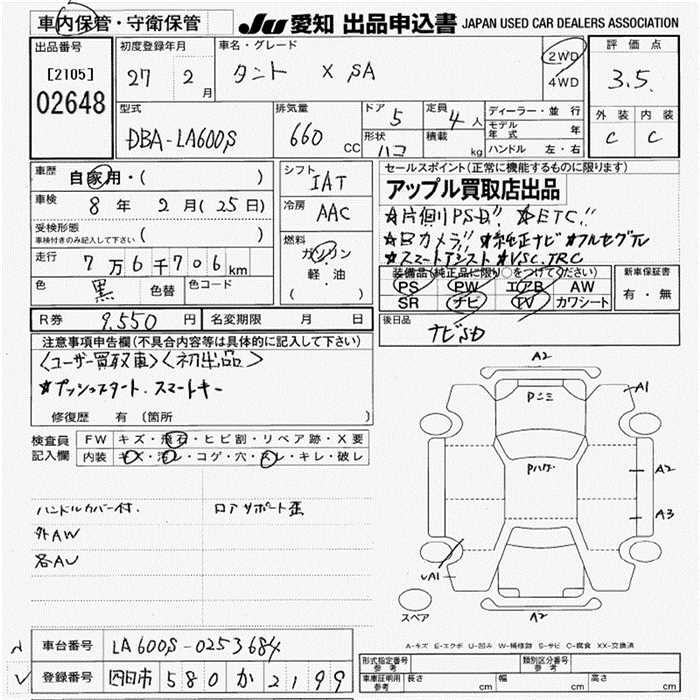 車内保管・守衛保管
JU 愛知 出品申込書 JAPAN USED CAR DEALERS ASSOCIATION
出品番号
[2105]
02648
初度登録年月
27 2月
車名・グレード
タント X SA
2WD
4WD
評価点
3.5
外装 内装
C C
型式
DBA-LA600S
排気量
660 CC
ドア 5
定員 4人
形状 ハコ
積載 kg
ディーラー・並行
モデル年式 年
ハンドル 左・右
車歴 自家用・( )
車検 8年 2月(25日)
受検形態
車検付きのみ記入して下さい ( )
走行 7万6千706km
色 黒 色替 色コード
シフト IAT
冷房 AAC
燃料
ガソリン
軽・油
( )
セールスポイント(正常に機能するものに限ります)
アップル買取店出品
☆片側PSD!! ☆ETC!!
☆Bカメラ!! ☆純正ナビ ☆フルセグTV
☆スマートアシスト ☆VSC.TRC
装備品(純正品に限り○をつけてください)
PS PW エアB AW
SR ナビ TV カワシート
新車保証書
有・無
R券 9,550円 名変期限 月 日
後日品
ナビSD
注意事項申告欄(不具合内容等は具体的に記入して下さい)
〈ユーザー買取車〉〈初出品〉
☆プッシュスタート.スマートキー
修復歴 有(箇所 )
検査員記入欄
FW キズ・飛石・ヒビ割・リペア跡・X要
内装 キズ・汚レ・コゲ・穴・スレ・キレ・破レ
ハンドルカバー付. ロアサポート歪
外AW
各AU
A2
Pニミ
A1
Pハゲ
A2
A3
UA1
A2
スペア
A-キズ E-エクボ U-凹み W-補修跡 S-サビ C-腐食 XX-交換済
車台番号 LA600S-0253684
登録番号 四日市 580 か 2199
形式指定番号 参考
類別区分番号 参考
車庫証明用 参考
長さ cm 幅 cm 高さ cm